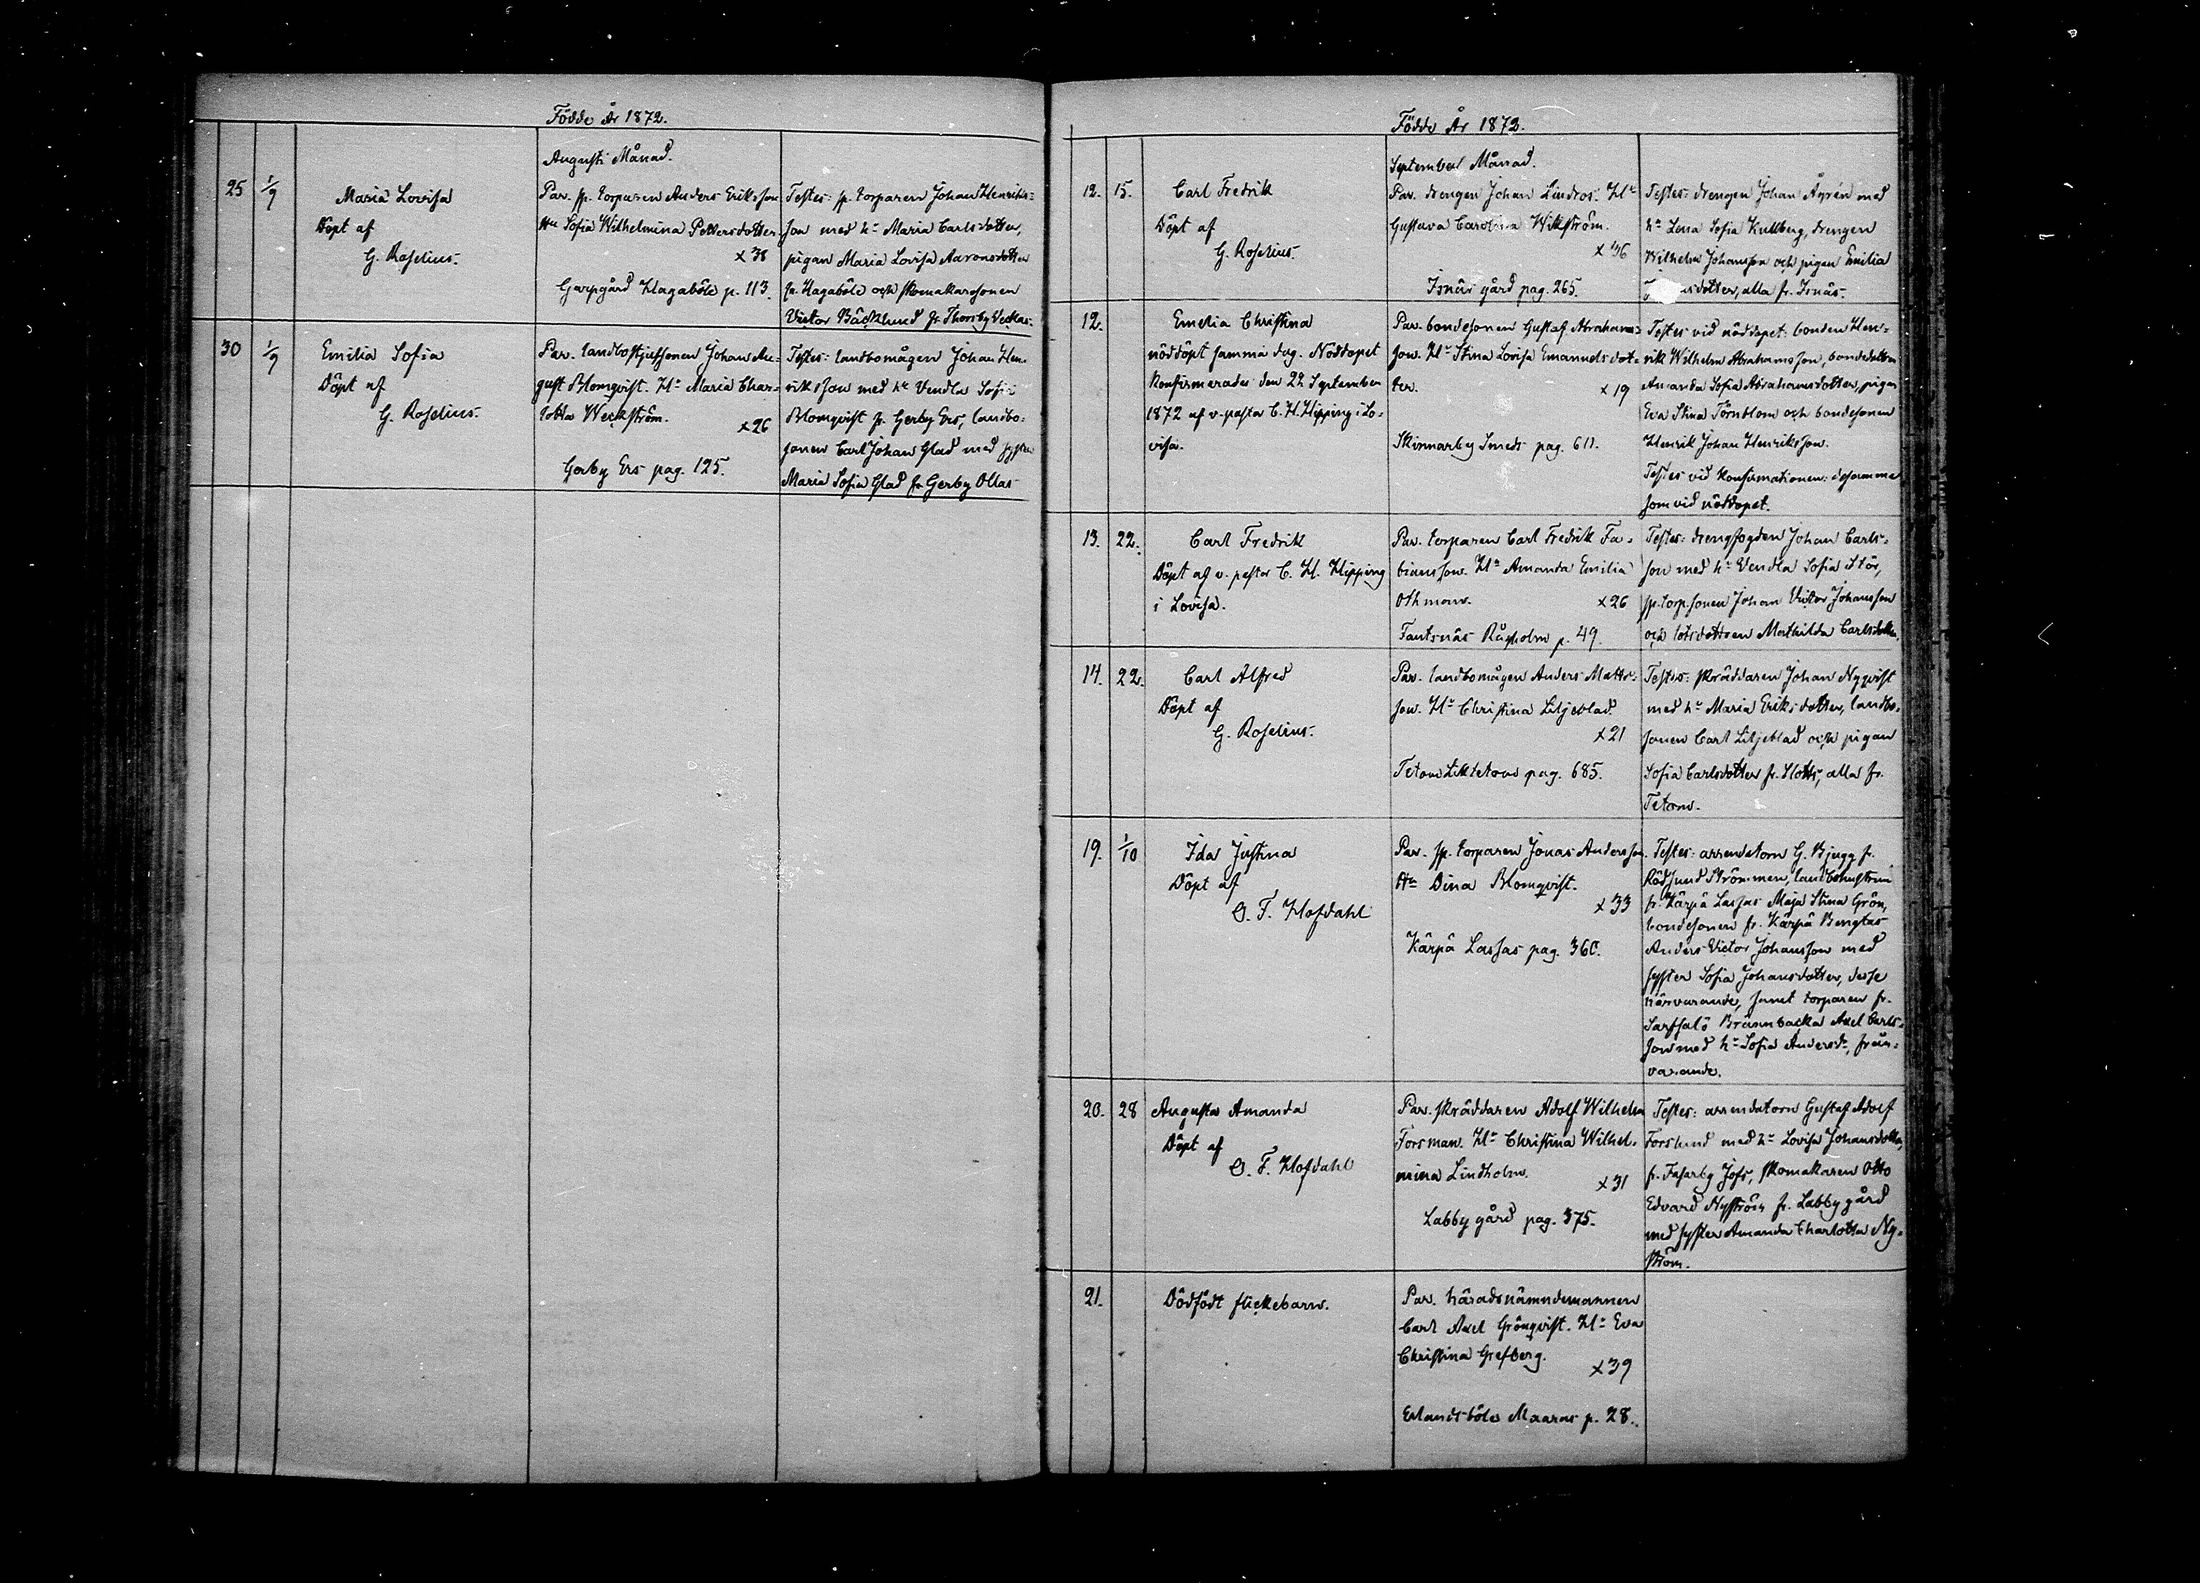 Födde År 1872.
Augusti Månad.
25 1/9 Maria Lovisa
Döpt af
G. Roselius.
Par. sp. torparen Anders Eriksson
Hu Sofia Wilhelmina Pettersdotter.
x 38
Garpgård Hagaböle p. 113.
Testes: sp. torparen Johan Henriks-
son med hu Maria Carlsdotter,
pigan Maria Lovisa Aaronsdotter
fr. Hagaböle och skomakaresonen
Victor Bäcklund fr. Thorsby Veckas.
30 1/9 Emilia Sofia
Döpt af
G. Roselius.
Par. landbostjufsonen Johan Au-
gust Blomqvist. Hu Maria Char-
lotta Weckström.
x 26
Gerby Ers pag. 125.
Testes: landbomågen Johan Hen-
riksson med hu Vendla Sofia
Blomqvist fr. Gerby Ers, landbo-
sonen Carl Johan Glad med syster
Maria Sofia Glad fr. Gerby Ollas
Födde År 1872.
September Månad.
12. 15. Carl Fredrik
Döpt af
G. Roselius.
Par. drengen Johan Lindros. Hu
Gustava Carolina Wikström.
x 36
Isnäs gård pag. 265.
Testes: drengen Johan Ågren med
hu Lena Sofia Kullberg, drengen
Wilhelm Johansson och pigan Emilia
alla fr. Isnäs.
12. Emelia Christina
nöddöpt samma dag. Nöddopet
konfirmerades den 22 September
1872 af v. pastor C. H. Hipping i Lo-
visa.
Par. bondesonen Gustaf Abrahams-
son. Hu Stina Lovisa Emanuelsdot-
ter.
x 19
Skinnarby Smeds pag. 611.
Testes vid nöddopet: bonden Hen-
rik Wilhelm Abrahamsson, bondedottren
Amanda Sofia Abrahamsdotter, pigan
Eva Stina Törnblom och bondesonen
Henrik Johan Henriksson.
Testes vid konfirmationen: desamma
som vid nöddopet.
13. 22. Carl Fredrik
Döpt af v. pastor C. H. Hipping
i Lovisa.
Par. torparen Carl Fredrik Fa-
biansson. Hu Amanda Emilia
Othman.
x 26
Fantsnäs Rågholm p. 49.
Testes: drengfogden Johan Carls-
son med hu Vendla Sofia Stör,
sp. torpsonen Johan Victor Johansson
och lotsdottren Mathilda Carlsdotter.
14. 22. Carl Alfred
Döpt af
G. Roselius.
Par. landbomågen Anders Matts-
son. Hu Christina Liljeblad.
x 21
Tetom Liktetom pag. 685.
Testes: skräddaren Johan Nyqvist
med hu Maria Eriksdotter, landbo-
sonen Carl Liljeblad och pigan
Sofia Carlsdotter fr. Klotts, alla fr.
Tetom.
19. 1/10 Ida Justina
Döpt af
O. F. Hofdahl
Par. sp. torparen Jonas Andersson.
Hu Dina Blomqvist.
x 33
Kärpä Lassas pag. 360.
Testes: arrendatorn G. Bjugg fr.
Rödsund Strömmen, landbohustrun
fr. Kärpä Lassas Maja Stina Grön,
bondesonen fr. Kärpä Bengtas
Anders Victor Johansson med
syster Sofia Johansdotter, desse
närvarande, samt torparen fr.
Sarfsalö Brännbacka Axel Carls-
son med hu Sofia Andersdr, från-
varande.
20. 28 Augusta Amanda
Döpt af
O. F. Hofdahl
Par. skräddaren Adolf Wilhelm
Forsman. Hu Christina Wilhel-
mina Lindholm.
x 31
Labby gård pag. 375.
Testes: arrendatorn Gustaf Adolf
Forslund med hu Lovisa Johansdotter
fr. Fasarby Jofs, skomakaren Otto
Edvard Nyström fr. Labby gård
med syster Amanda Charlotta Ny-
ström.
21. Dödfödt flickebarn.
Par. häradsnämndemannen
Carl Axel Grönqvist. Hu Eva
Christina Grefberg.
x 39
Erlandsböle Maaras p. 28.